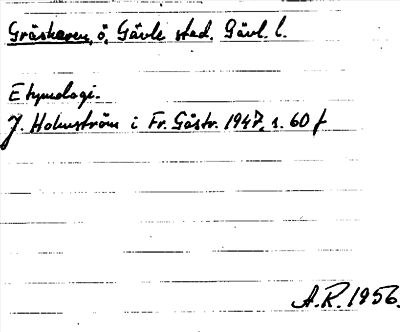 Gråskären, ö, Gävle stad. Gävl. l.
Etymologi.
J. Holmström i Fr. Gästr. 1947, s. 60 f
A.R. 1956.